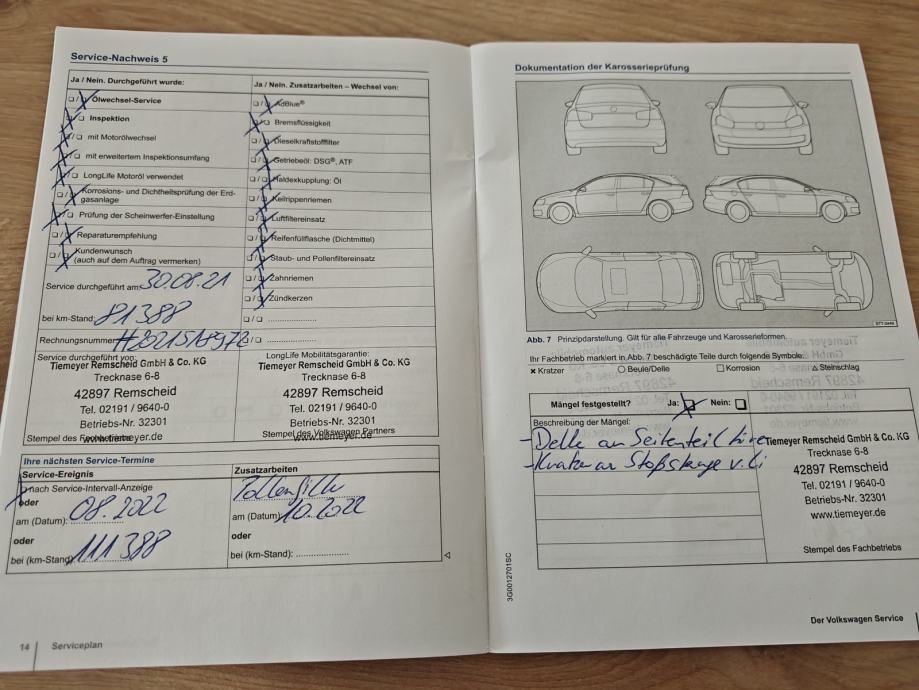 Service-Nachweis 5
Ja / Nein. Durchgeführt wurde:
Ölwechsel-Service
Inspektion
mit Motorölwechsel
mit erweitertem Inspektionsumfang
LongLife Motoröl verwendet
Korrosions- und Dichtheitsprüfung der Erd-
gasanlage
Prüfung der Scheinwerfer-Einstellung
Reparaturempfehlung
Kundenwunsch
(auch auf dem Auftrag vermerken)
Service durchgeführt am: 30.08.21
bei km-Stand: 81388
Rechnungsnummer:
Service durchgeführt von:
Tiemeyer Remscheid GmbH & Co. KG
Trecknase 6-8
42897 Remscheid
Tel. 02191 / 9640-0
Betriebs-Nr. 32301
www.tiemeyer.de
Stempel des Fachbetriebs
Ja / Nein. Zusatzarbeiten – Wechsel von:
AdBlue®
Bremsflüssigkeit
Dieselkraftstofffilter
Getriebeöl: DSG®, ATF
Haldexkupplung: Öl
Keilrippenriemen
Luftfiltereinsatz
Reifenfüllflasche (Dichtmittel)
Staub- und Pollenfiltereinsatz
Zahnriemen
Zündkerzen
LongLife Mobilitätsgarantie:
Tiemeyer Remscheid GmbH & Co. KG
Trecknase 6-8
42897 Remscheid
Tel. 02191 / 9640-0
Betriebs-Nr. 32301
www.tiemeyer.de
Stempel des Volkswagen Partners
Ihre nächsten Service-Termine
Service-Ereignis
nach Service-Intervall-Anzeige
oder
am (Datum): 08.2022
oder
bei (km-Stand): 111388
Zusatzarbeiten
am (Datum): 10.2022
oder
bei (km-Stand):
14 Serviceplan
Dokumentation der Karosserieprüfung
Abb. 7 Prinzipdarstellung. Gilt für alle Fahrzeuge und Karosserieformen.
Ihr Fachbetrieb markiert in Abb. 7 beschädigte Teile durch folgende Symbole:
× Kratzer ○ Beule/Delle □ Korrosion △ Steinschlag
Mängel festgestellt? Ja: Nein:
Beschreibung der Mängel:
- Delle an Seitenteil
- Kratzer an Stoßstange v. li
Tiemeyer Remscheid GmbH & Co. KG
Trecknase 6-8
42897 Remscheid
Tel. 02191 / 9640-0
Betriebs-Nr. 32301
www.tiemeyer.de
Stempel des Fachbetriebs
3G0012701SC
Der Volkswagen Service